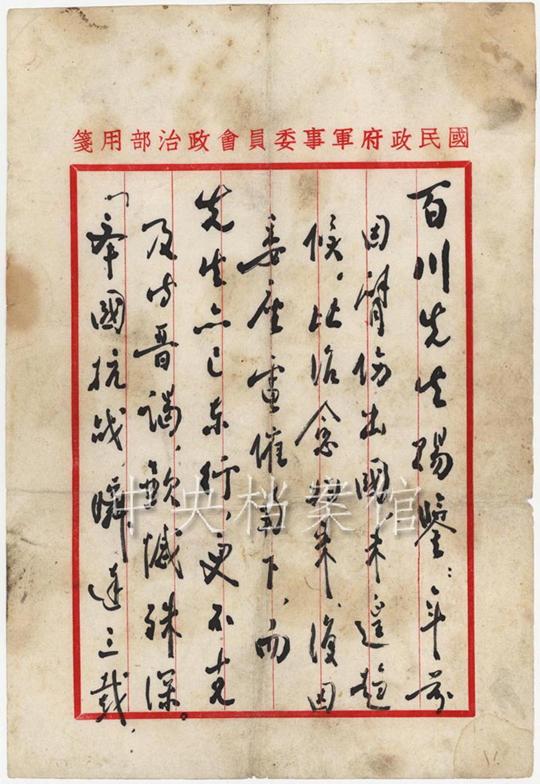 國民政府軍事委員會政治部用箋
百川先生賜鑒：年前
因臂傷出國，未遑趨
候，比治愈歸來，復因
委座電催南下，而
先生亦已東行，更不克
及時晉謁，歉憾殊深。
「舉國抗戰，瞬達三載，
中央档案馆